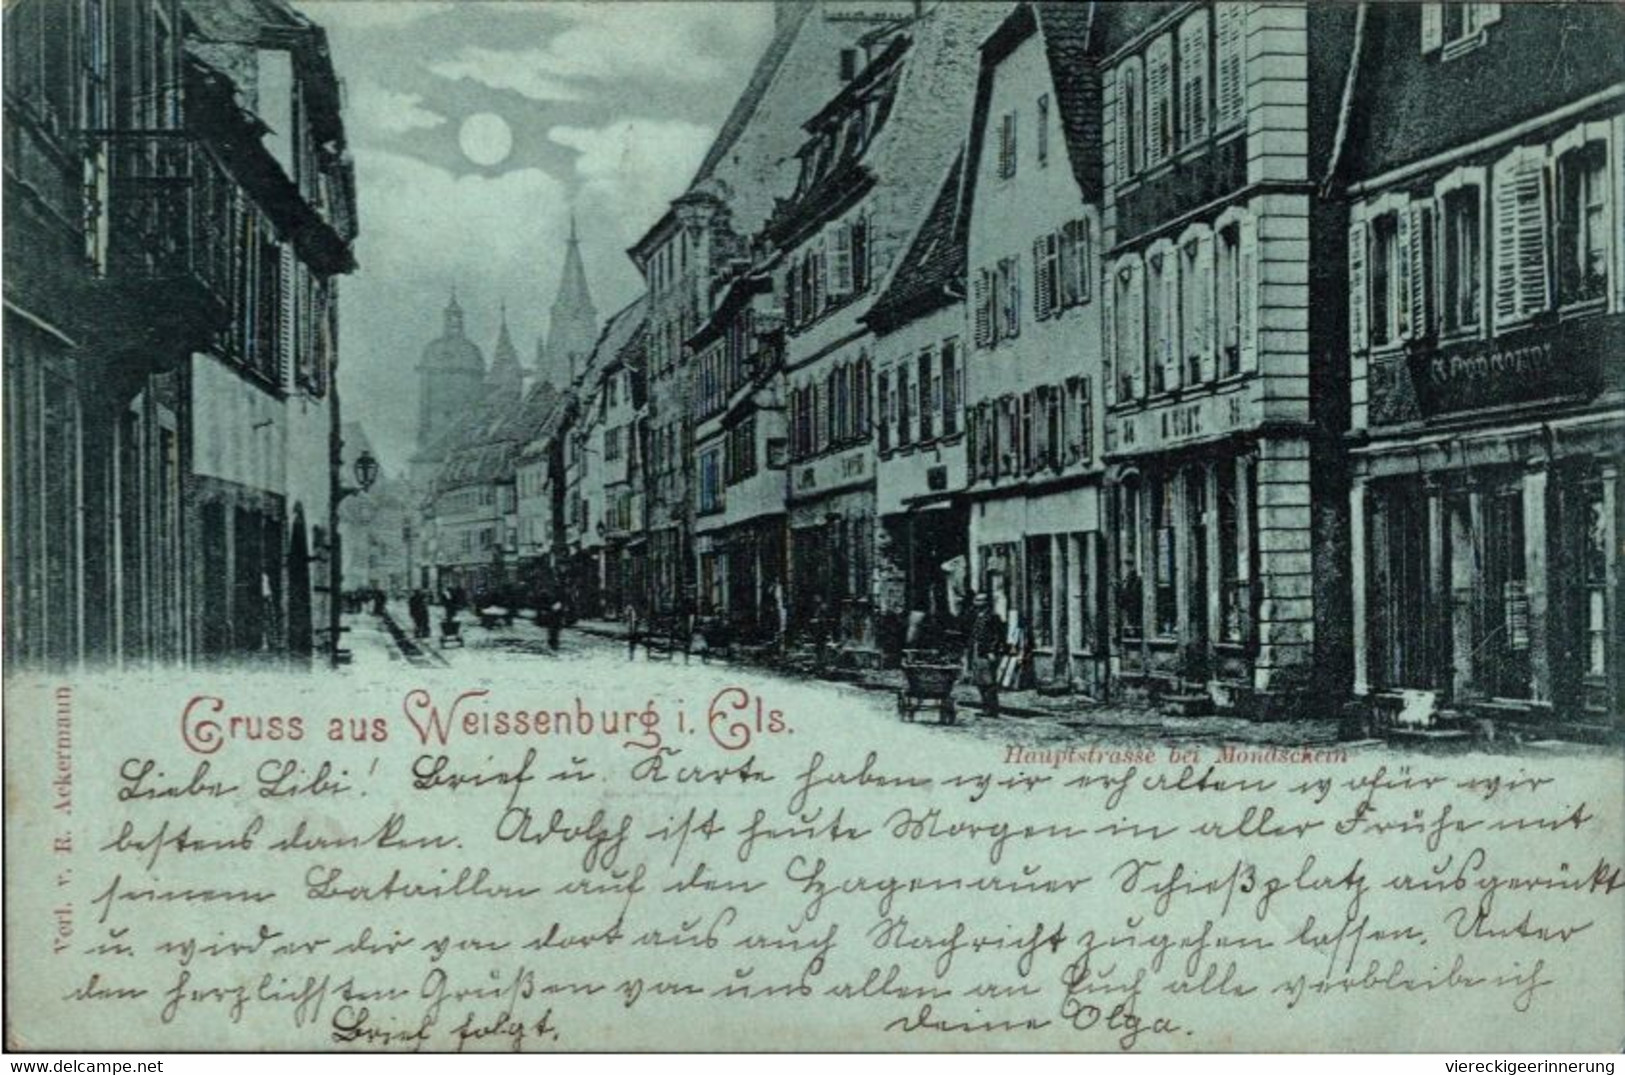 A. VOGT.
Gruss aus Weissenburg i. Els.
Hauptstrasse bei Mondschein
Verl. v. R. Ackermann
Liebe Libi! Brief u. Karte haben wir erhalten wofür wir
bestens danken. Adolph ist heute Morgen in aller Frühe mit
seinem Bataillon auf den Hagenauer Schießplatz ausgerückt
u. wird er dir von dort aus auch Nachricht zugehen lassen. Unter
den herzlichsten Grüßen von uns allen an Euch alle verbleibe ich
Brief folgt. deine Olga.
delcampe.net
viereckigeerinnerung